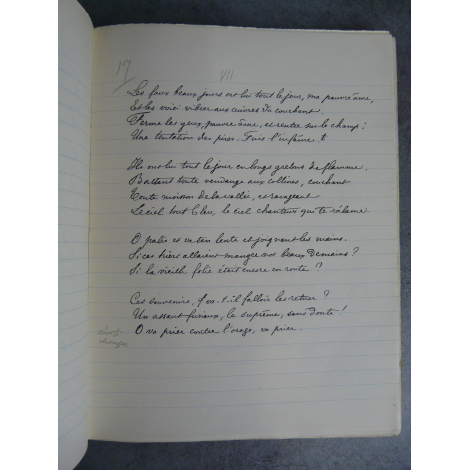 VII
Les faux beaux jours ont lui tout le jour, ma pauvre âme,
Et les voici vibrer aux cuivres du couchant.
Ferme les yeux, pauvre âme, et rentre sur le champ :
Une tentation des pires. Fuis l'infâme !
Ils ont lui tout le jour en longs grêlons de flamme,
Battant toute vendange aux collines, couchant
Toute moisson de la vallée, et ravageant
Le ciel tout bleu, le ciel chanteur qui te réclame.
O pâlis et va-t'en lente et joignant les mains.
Si ces hiers allaient manger nos beaux demains ?
Si la vieille folie était encore en route ?
Ces souvenirs, va-t-il falloir les retuer ?
Un assaut furieux, le suprême, sans doute !
O va prier contre l'orage, va prier.